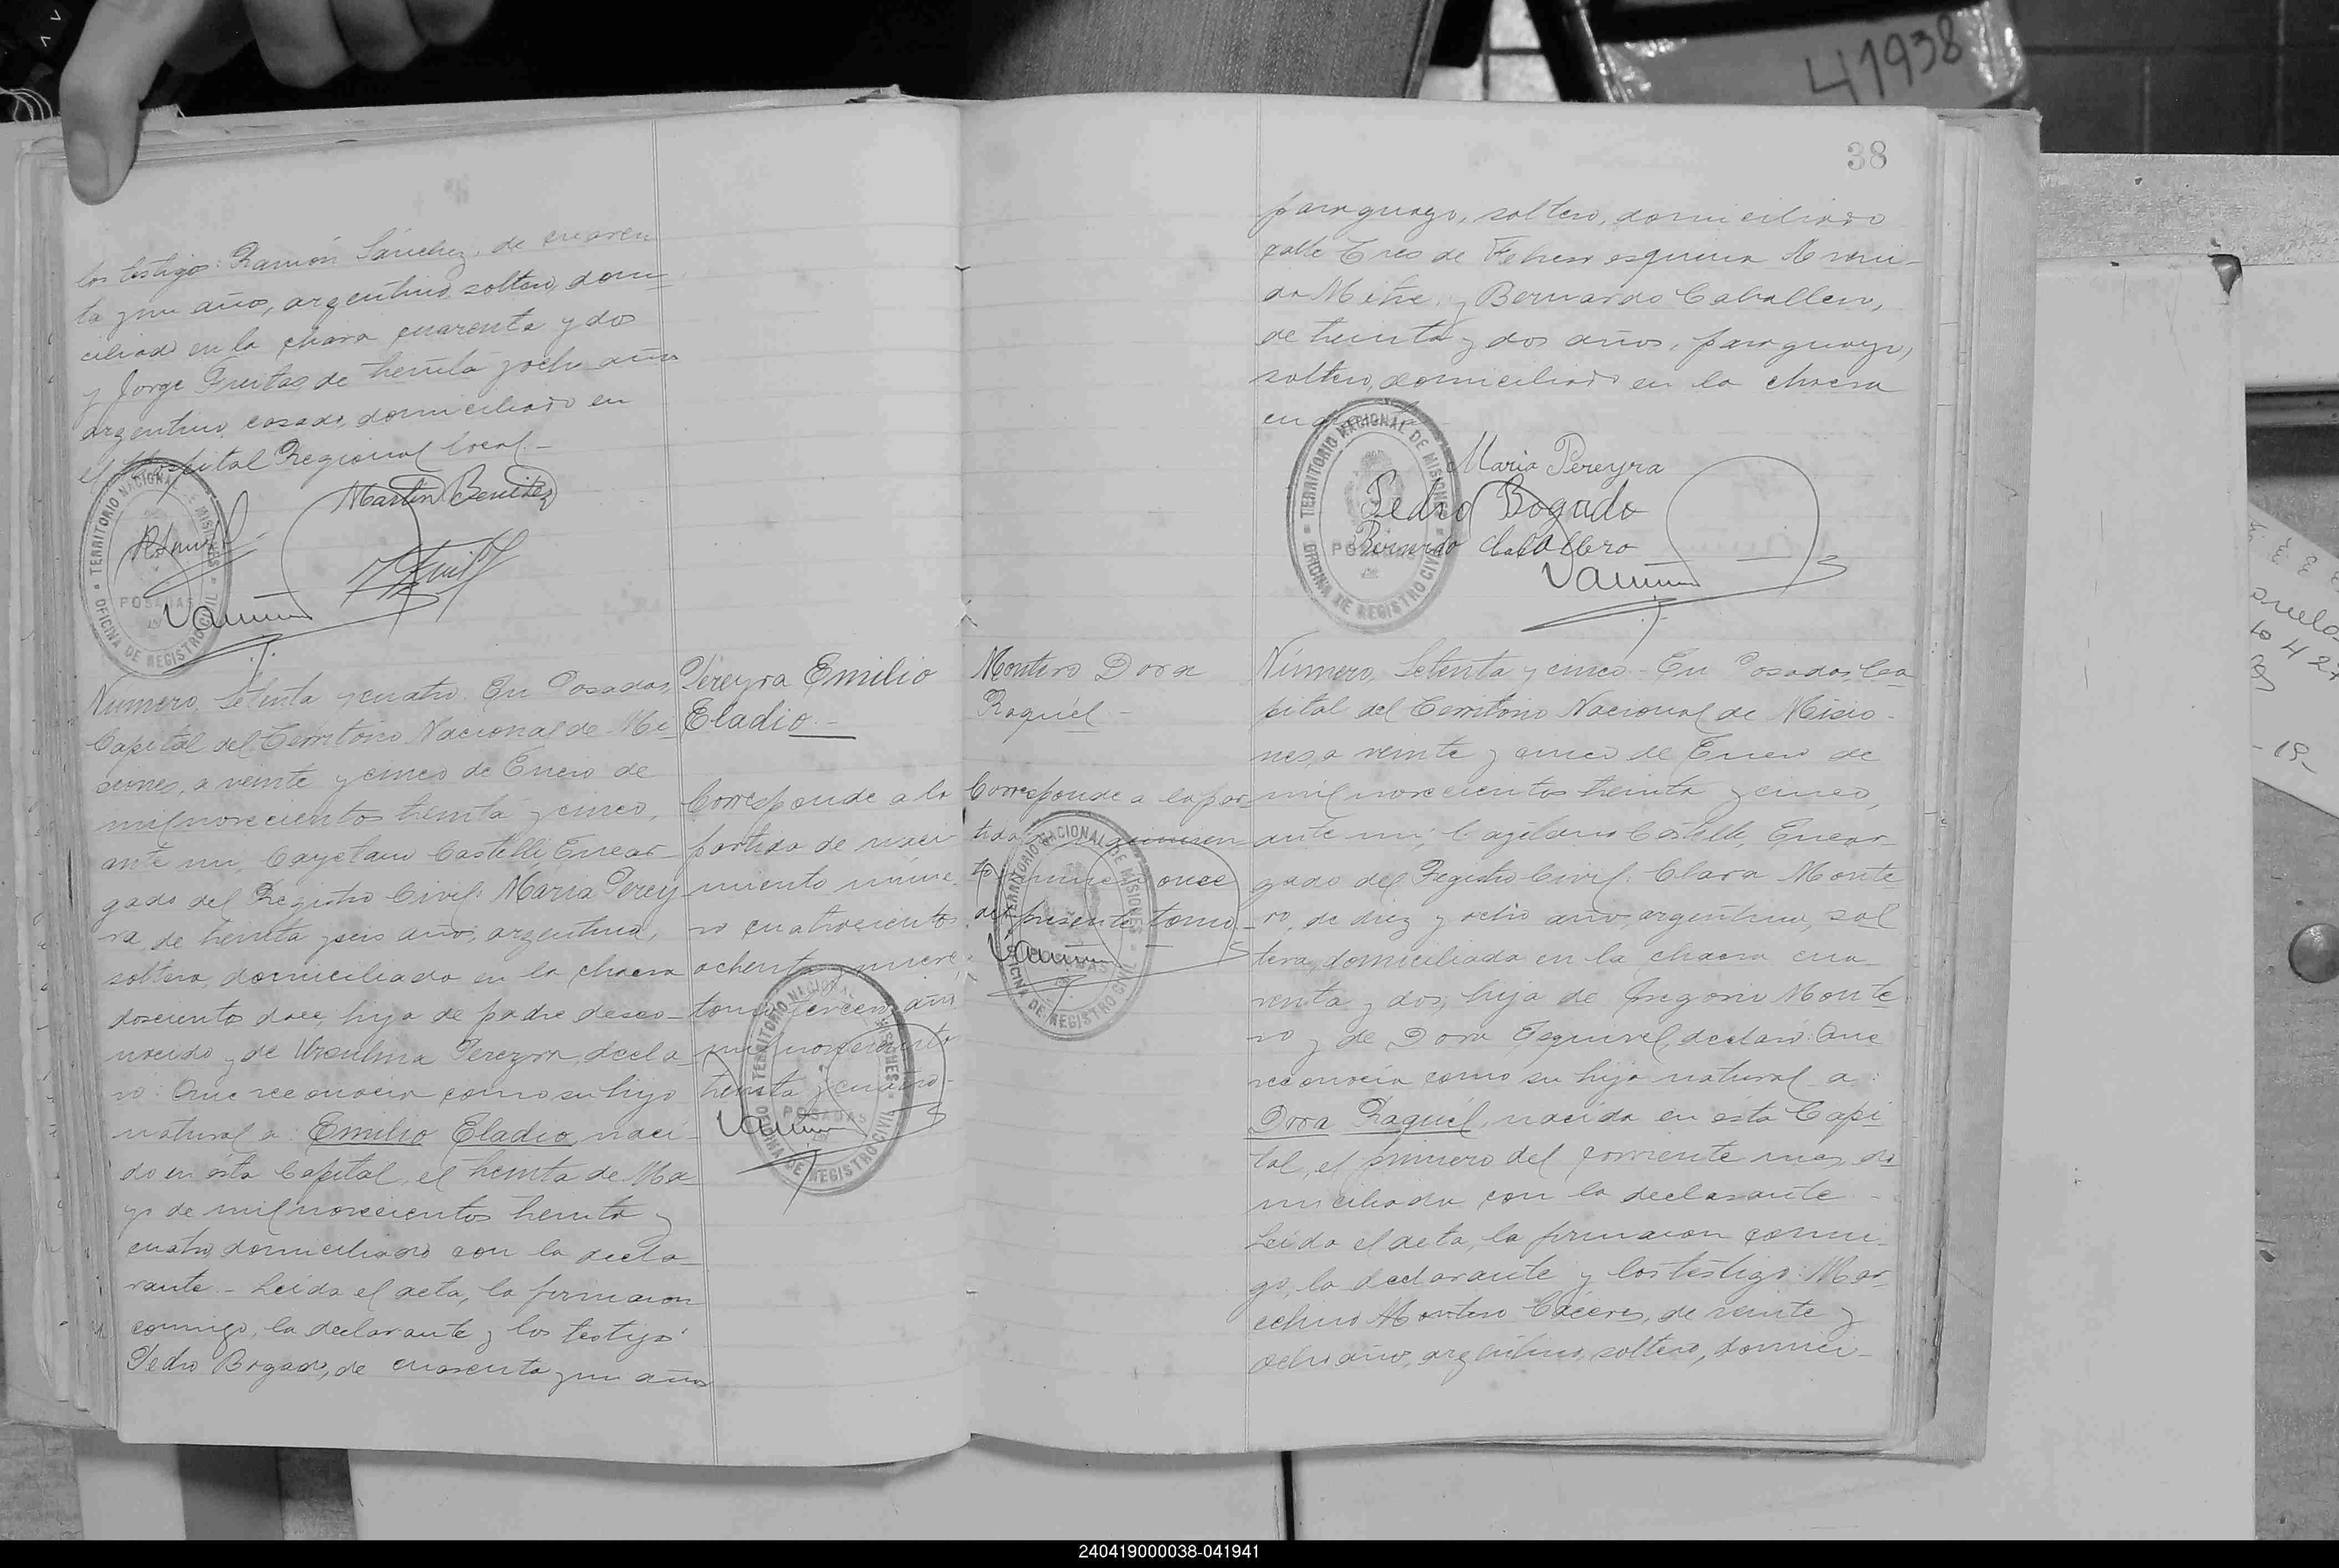 41938
38
los testigos: Ramón Sánchez, de cuaren
ta y un años, argentino, soltero, domi
ciliado en la chara cuarenta y dos
y Jorge Freitas, de treinta y ocho años
argentino, casado, domiciliado en
el Hospital Regional local.-
Martin Benitez
TERRITORIO NACIONAL DE MISIONES
POSADAS
OFICINA DE REGISTRO CIVIL
Pereyra Emilio
Eladio.-
Número, Setenta y cuatro. En Posadas,
Capital del Territorio Nacional de Mi
siones, a veinte y cinco de Enero de
mil novecientos treinta y cinco,
ante mi, Cayetano Castelli, Encar
gado del Registro Civil: Maria Perey
ra, de treinta y seis años, argentina,
soltera, domiciliada en la chacra
doscientos doce, hija de padre desco-
nocido y de Ursulina Pereyra, decla
ró: Que reconocia como su hijo
natural a: Emilio Eladio, naci-
do en esta Capital, el treinta de Ma
yo de mil novecientos treinta y
cuatro, domiciliado con la decla-
rante.- Leida el acta, la firmaron
conmigo, la declarante y los testigos:
Pedro Bogado, de cuarenta y un años
Corresponde a la
partida de naci-
miento núme-
ro cuatrocientos
ochenta y nueve,
tomo tercero, año
mil novecientos
treinta y cuatro.-
TERRITORIO NACIONAL DE MISIONES
POSADAS
OFICINA DE REGISTRO CIVIL
paraguayo, soltero, domiciliado
calle Tres de Febrero esquina Aveni-
da Mitre, y Bernardo Caballero,
de treinta y dos años, paraguayo,
soltero, domiciliado en la chacra
Maria Pereyra
Pedro Bogado
Bernardo Caballero
TERRITORIO NACIONAL DE MISIONES
POSADAS
OFICINA DE REGISTRO CIVIL
Montero Dora
Raquél -
Corresponde a la par-
tida
to número once
del presente tomo.-
TERRITORIO NACIONAL DE MISIONES
POSADAS
OFICINA DE REGISTRO CIVIL
Número, Setenta y cinco - En Posadas, Ca
pital del Territorio Nacional de Misio-
nes, a veinte y cinco de Enero de
mil novecientos treinta y cinco,
ante mi, Cayetano Castelli, Encar
gado del Registro Civil: Clara Monte
ro, de diez y ocho años, argentina, sol
tera, domiciliada en la chacra cua
renta y dos, hija de Gregorio Monte
ro y de Dora Esquivel, declaró: Que
reconocia como su hija natural a:
Dora Raquél, nacida en esta Capi
tal, el primero del corriente mes, do
miciliada con la declarante -
Leida el acta, la firmaron conmi-
go, la declarante y los testigos: Mar
celino Montero Cáceres, de veinte y
ocho años, argentino, soltero, domici-
240419000038-041941